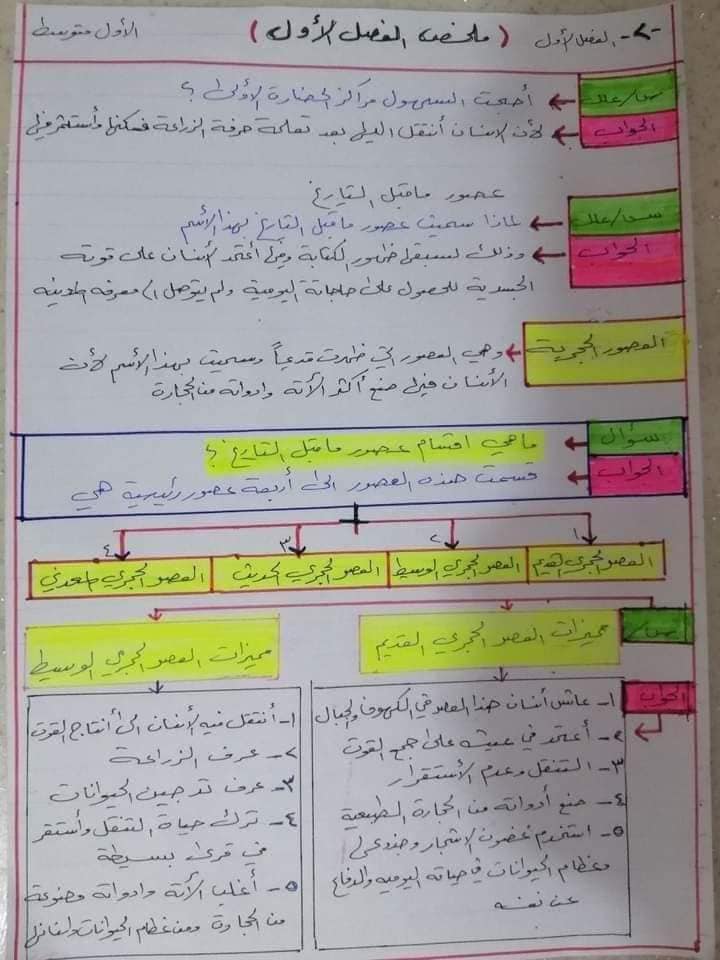 -٢- الفصل الأول ( ملخص الفصل الأول ) الأول متوسط
س/علل أصبحت السهول مراكز الحضارة الأولى ؟
الجواب لأن الانسان أنتقل اليها بعد تعلمه حرفة الزراعة فسكنها وأستقر فيها
عصور ماقبل التاريخ
س/علل لماذا سميت عصور ماقبل التاريخ بهذا الأسم
الجواب وذلك لسبقها ظهور الكتابة وفيها أعتمد الأنسان على قوته
الجسدية للحصول على حاجاته اليومية ولم يتوصل الى معرفة المدينه
العصور الحجرية وهي العصور التي ظهرت قديماً وسميت بهذا الأسم لأن
الأنسان فيها صنع أكثر الأته وادواته من الحجارة
سؤال ماهي اقسام عصور ماقبل التاريخ ؟
الجواب قسمت هذه العصور الى أربعة عصور رئيسية هي
١ ٢ ٣ ٤
العصر الحجري القديم العصر الحجري الوسيط العصر الحجري الحديث العصر الحجري المعدني
س/ مميزات العصر الحجري القديم
مميزات العصر الحجري الوسيط
الجواب
١- عاش أنسان هذا العصر في الكهوف والجبال
٢- أعتمد في عيشه على جمع القوت
٣- التنقل وعدم الأستقرار
٤- صنع أدواته من الحجارة الطبيعية
٥- استخدم غصون الاشجار وجذوعها
وعظام الحيوانات في حياته اليوميه والدفاع
عن نفسه
١- أنتقل فيه الأنسان الى أنتاج القوت
٢- عرف الزراعة
٣- عرف تدجين الحيوانات
٤- ترك حياة التنقل وأستقر
في قرى بسيطة
٥- أغلب الأته وادواته مصنوعة
من الحجارة ومن عظام الحيوانات